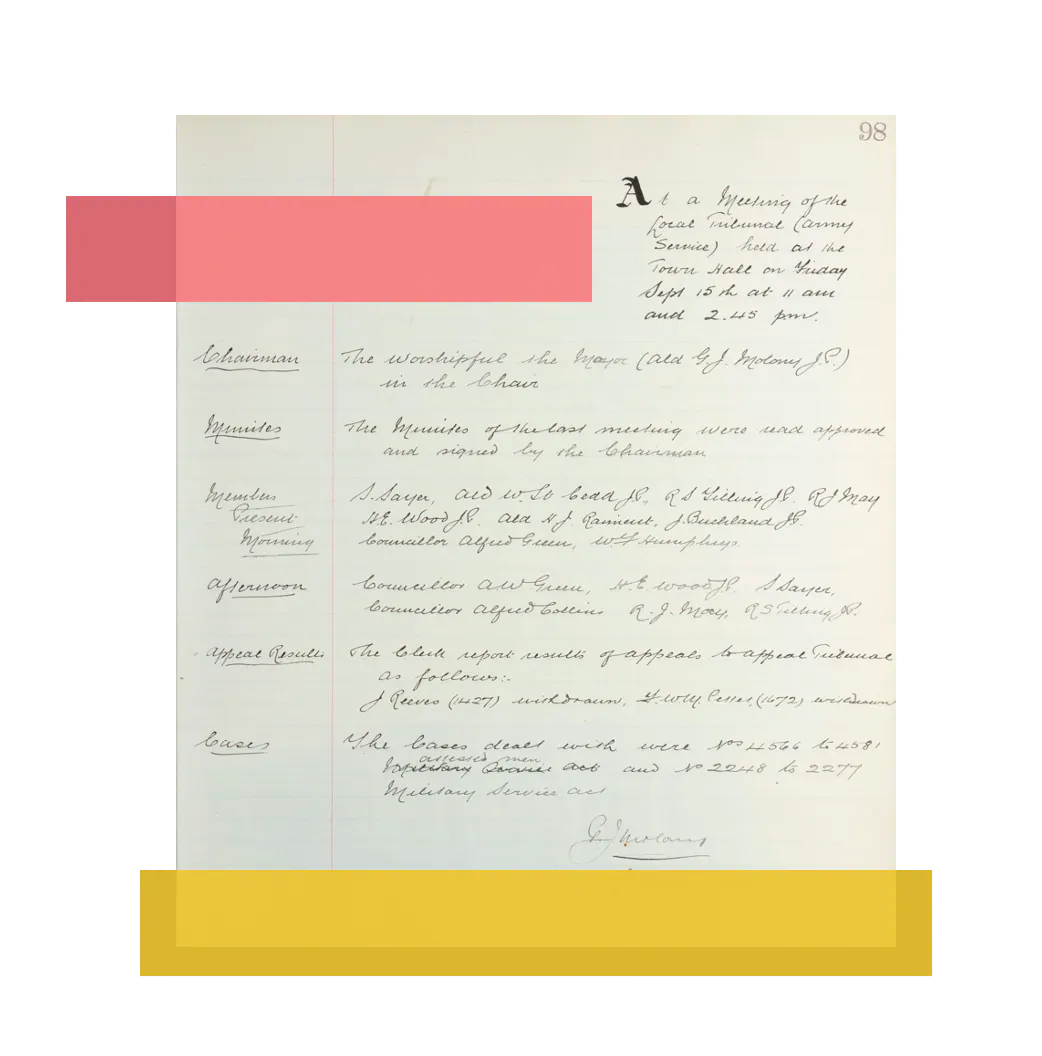 98
At a Meeting of the
Local Tribunal (Army
Service) held at the
Town Hall on Friday
Sept 15th at 11 am
and 2.45 pm.
Chairman The Worshipful the Mayor (Ald G. J. Molony J.P.)
in the Chair
Minutes The Minutes of the last meeting were read approved
and signed by the Chairman
Members S. Sayer, Ald W. Cedd J.P., R S Tilling J.P. R J May
Present H.E. Wood J.P. Ald H. J. Raiment, J. Buckland J.P.
Morning Councillor Alfred Green, W Humphrys.
Afternoon Councillor A W Green, H. E. Wood J.P. S Sayer,
Councillor Alfred Collins R. J. May, R S Tilling J.P.
Appeal Results The Clerk report results of appeals to appeal Tribunal
as follows:-
J Reeves (1427) withdrawn, W M (1672) withdrawn
Cases The Cases dealt with were Nos 4566 to 4581
assessed men
Military Service Act and No 2248 to 2277
Military Service Act
G J Molony